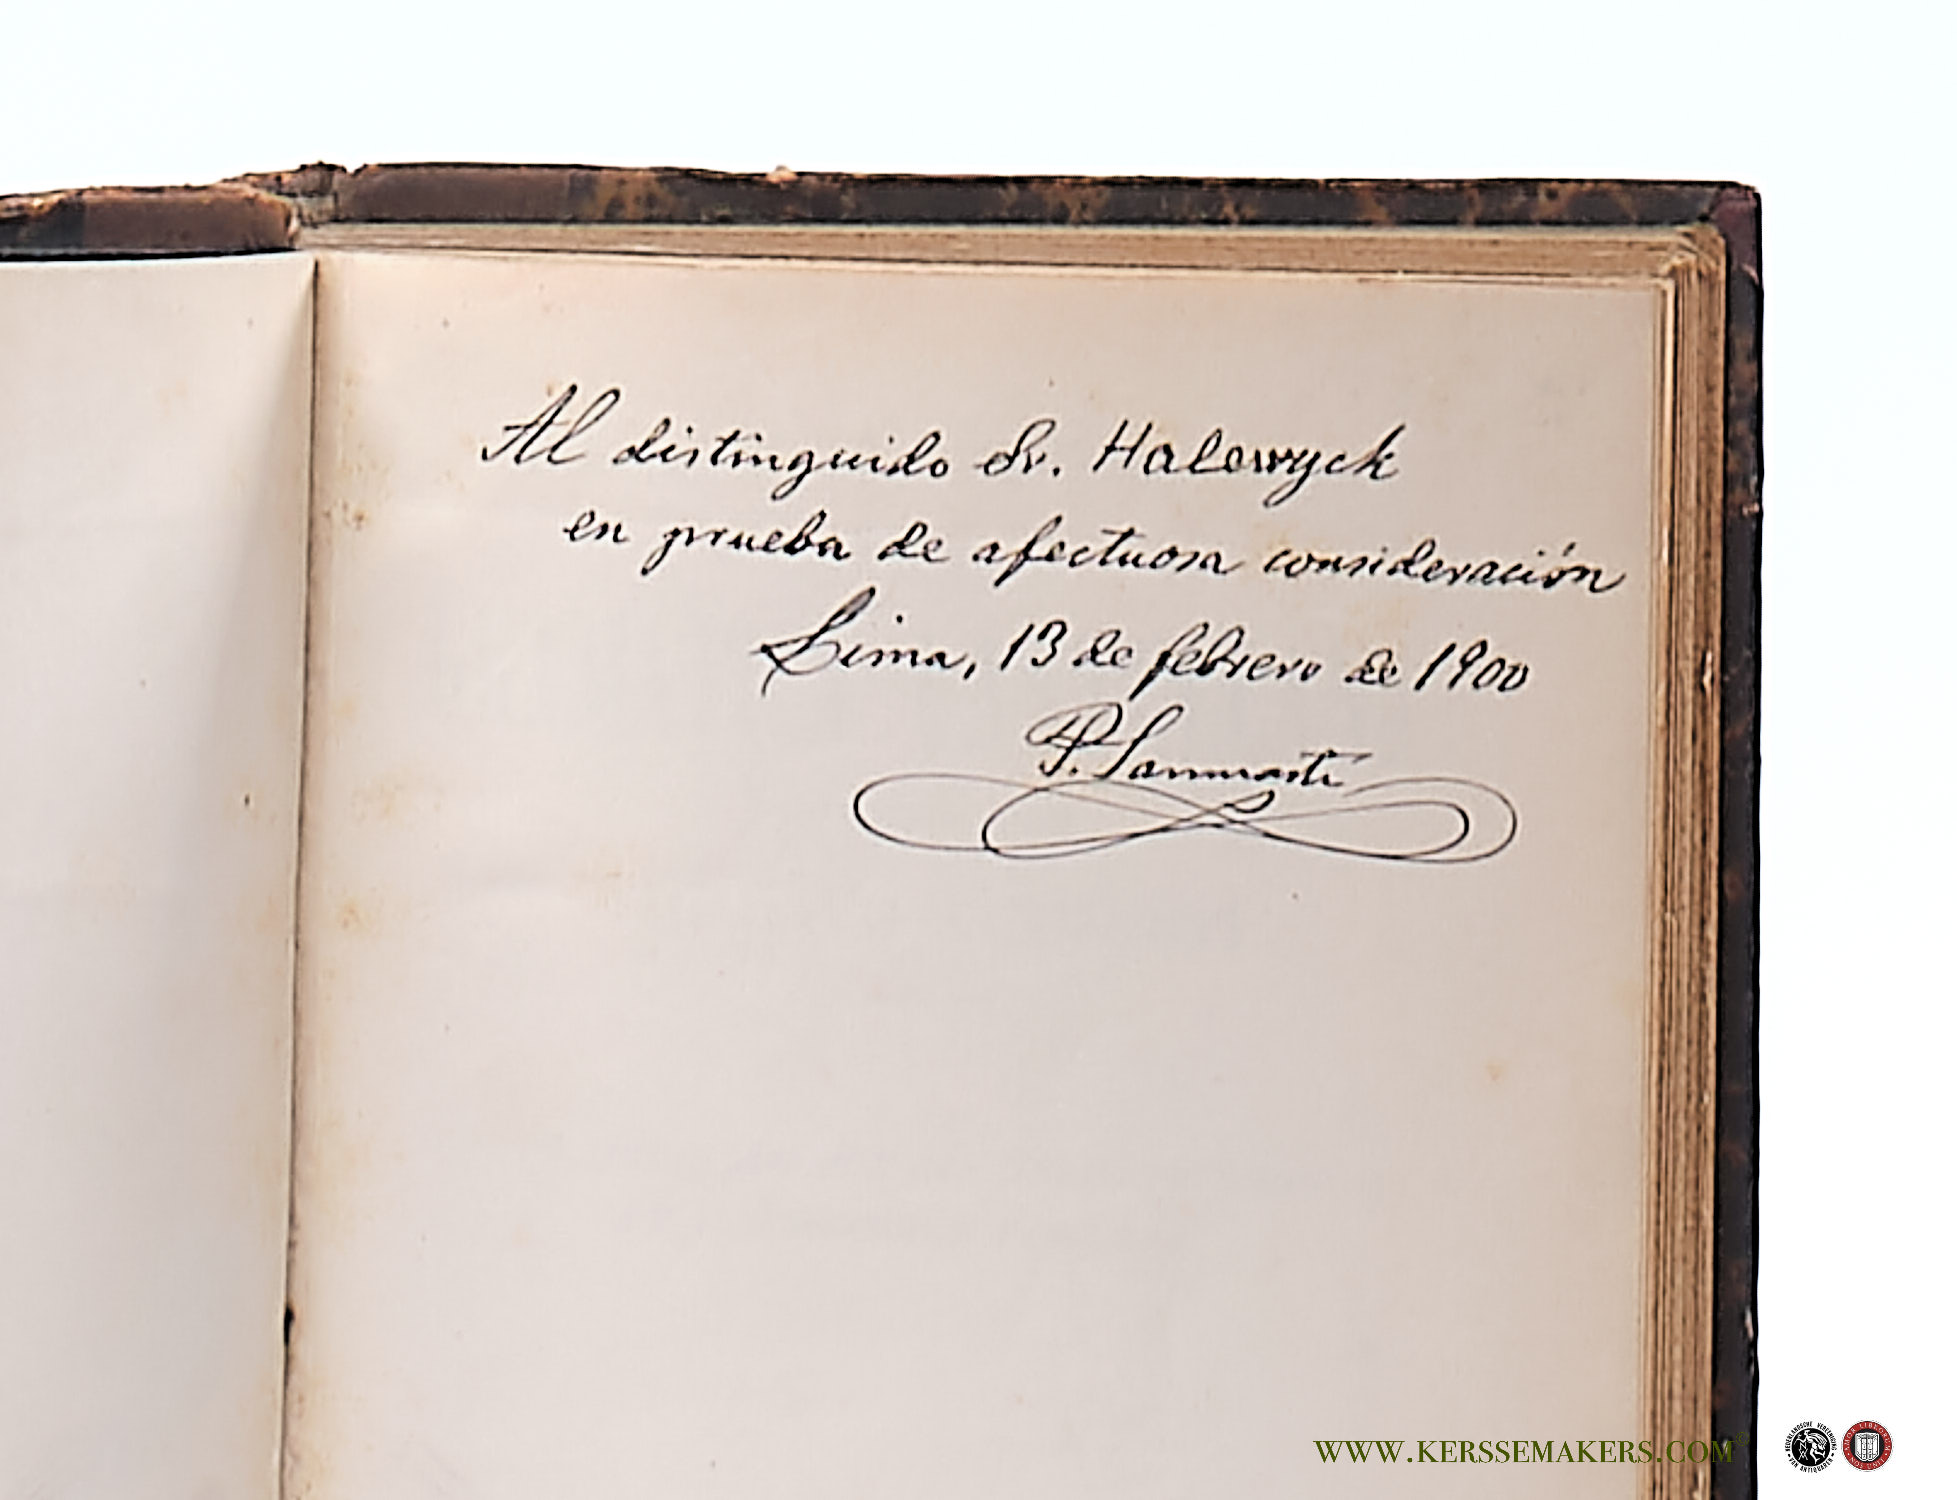 Al distinguido Sr. Halewyck
en prueba de afectuosa consideración
Lima, 13 de febrero de 1900
P. Sanmartí
WWW.KERSSEMAKERS.COM©